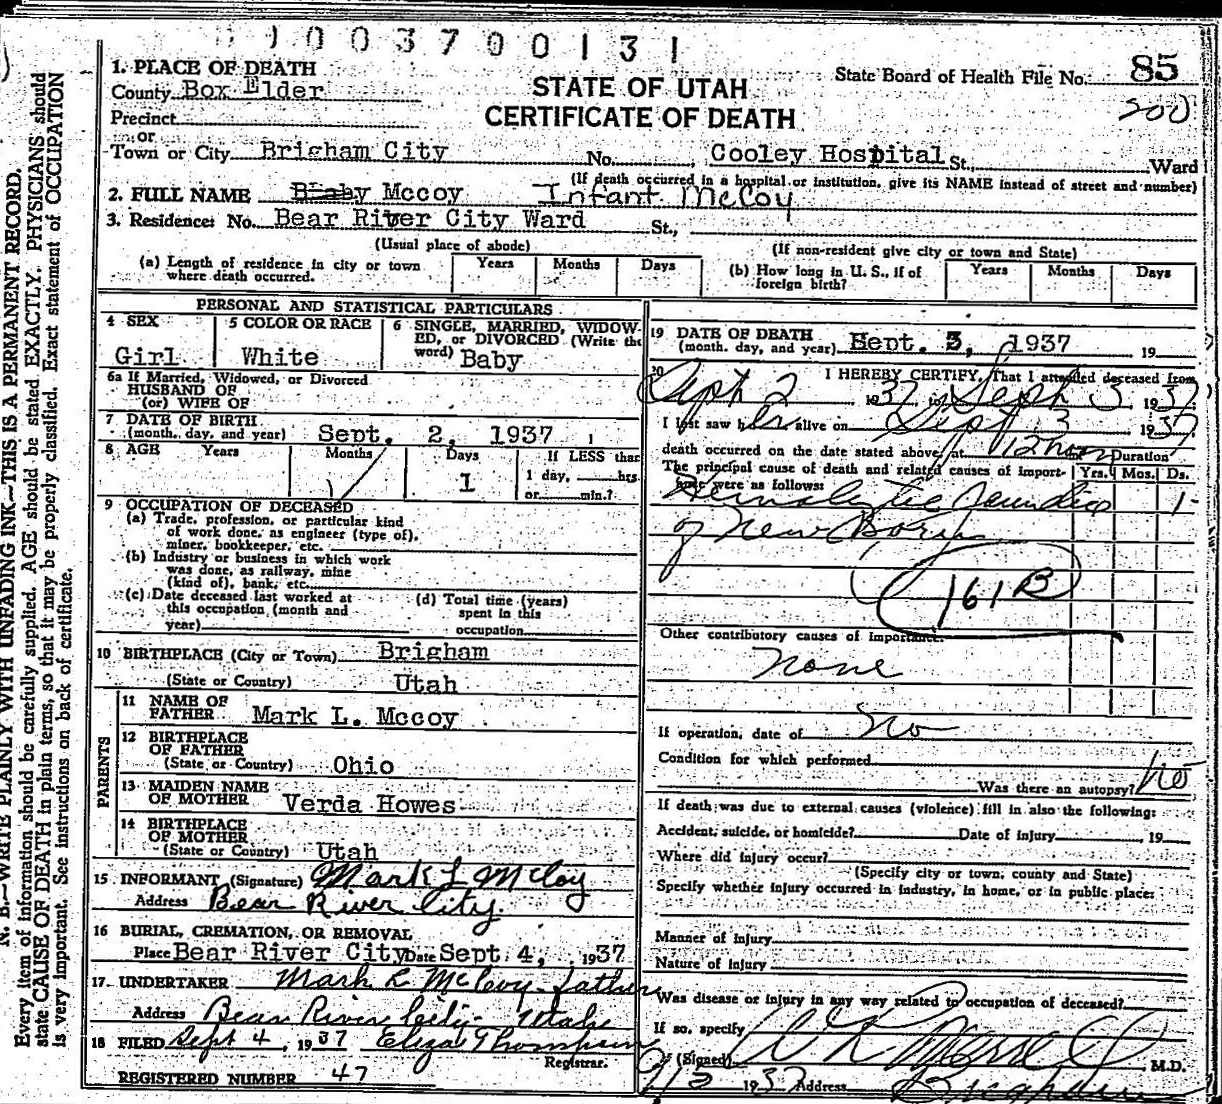 1003700131
1. PLACE OF DEATH
STATE OF UTAH
CERTIFICATE OF DEATH
State Board of Health File No. 85
200
County Box Elder
Precinct
or
Town or City Brigham City No. , Cooley Hospital St., Ward
(If death occurred in a hospital or institution, give its NAME instead of street and number)
2. FULL NAME Baby Mccoy Infant McCoy
3. Residence: No. Bear River City Ward St.,
(Usual place of abode) (If non-resident give city or town and State)
(a) Length of residence in city or town where death occurred. Years Months Days
(b) How long in U. S., if of foreign birth? Years Months Days
PERSONAL AND STATISTICAL PARTICULARS
4 SEX Girl
5 COLOR OR RACE White
6 SINGLE, MARRIED, WIDOWED, or DIVORCED (Write the word) Baby
6a If Married, Widowed, or Divorced
HUSBAND OF
(or) WIFE OF
7 DATE OF BIRTH
(month, day, and year) Sept. 2, 1937
8 AGE Years Months Days 1
If LESS than
1 day, hrs.
or min.?
9 OCCUPATION OF DECEASED
(a) Trade, profession, or particular kind
of work done, as engineer (type of),
miner, bookkeeper, etc.
(b) Industry or business in which work
was done, as railway, mine
(kind of), bank, etc.
(c) Date deceased last worked at
this occupation (month and
year)
(d) Total time (years)
spent in this
occupation
10 BIRTHPLACE (City or Town) Brigham
(State or Country) Utah
PARENTS
11 NAME OF
FATHER Mark L. Mccoy
12 BIRTHPLACE
OF FATHER
(State or Country) Ohio
13 MAIDEN NAME
OF MOTHER Verda Howes
14 BIRTHPLACE
OF MOTHER
(State or Country) Utah
15 INFORMANT (Signature) Mark L McCoy
Address Bear River City
16 BURIAL, CREMATION, OR REMOVAL
Place Bear River City Date Sept. 4, 1937
17 UNDERTAKER Mark L McCoy - father
Address Bear River City - Utah
18 FILED Sept 4, 1937 Eliza Thomsen
Registrar.
REGISTERED NUMBER 47
19 DATE OF DEATH
(month, day, and year) Sept. 3, 1937 19
20 I HEREBY CERTIFY, That I attended deceased from
Sept 2 1937 to Sept 3 1937
I last saw her alive on Sept 3 1937
death occurred on the date stated above, at 12 noon Duration
The principal cause of death and related causes of importance were as follows: Yrs. Mos. Ds.
Hemolytic Jaundice 1
of New Born
161 B
Other contributory causes of importance:
none
If operation, date of No
Condition for which performed
Was there an autopsy? No
If death was due to external causes (violence) fill in also the following:
Accident, suicide, or homicide? Date of injury , 19
Where did injury occur?
(Specify city or town, county and State)
Specify whether injury occurred in industry, in home, or in public place:
Manner of injury
Nature of injury
Was disease or injury in any way related to occupation of deceased?
If so, specify
(Signed) M.D.
1937 Address Brigham
N. B.—WRITE PLAINLY WITH UNFADING INK—THIS IS A PERMANENT RECORD.
Every item of information should be carefully supplied. AGE should be stated EXACTLY. PHYSICIANS should
state CAUSE OF DEATH in plain terms, so that it may be properly classified. Exact statement of OCCUPATION
is very important. See instructions on back of certificate.